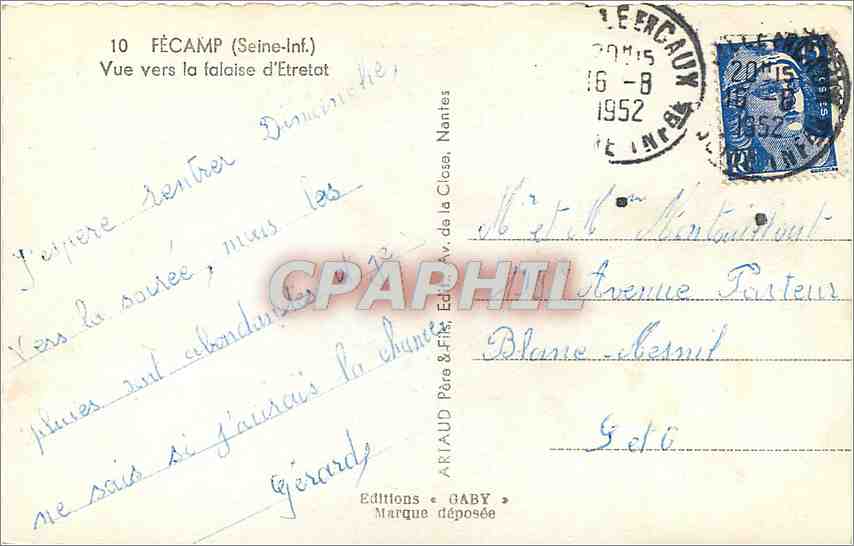 10 FÉCAMP (Seine-Inf.)
Vue vers la falaise d'Etretat
J'espere rentrer Dimanche,
Vers la soirée, mais les
pluies sont abondantes et je
ne sais si j'aurais la chance
Gérard
ARTAUD Père & Fils, Edit., Av. de la Close, Nantes
Editions « GABY »
Marque déposée
LE EN CAUX
20H15
16 -8
1952
NE INFRE
20H15
16 -8
1952
Mr et Mme
Avenue Pasteur
Blanc-Mesnil
S et O
CPAPHIL